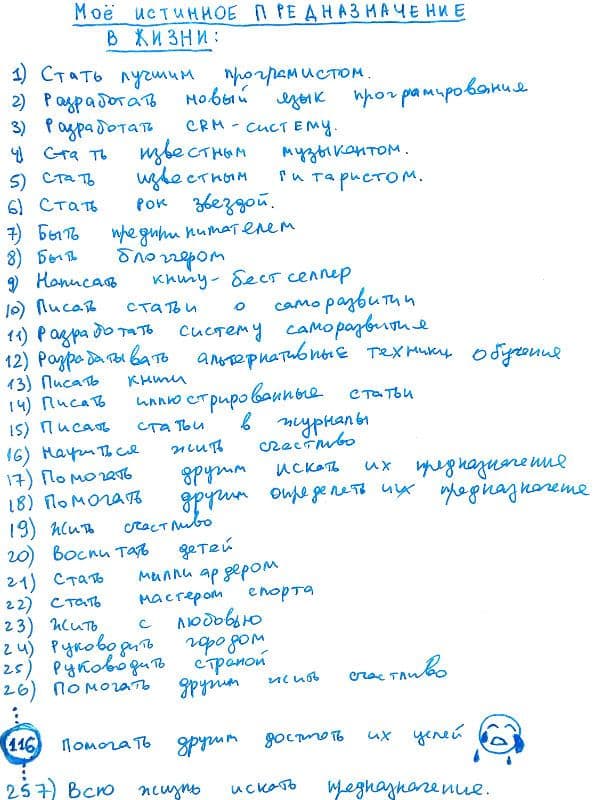 Моё истинное предназначение
в жизни:
1) Стать лучшим програмистом.
2) Разработать новый язык програмирования
3) Разработать CRM-систему.
4) Стать известным музыкантом.
5) Стать известным гитаристом.
6) Стать рок звездой.
7) Быть предпринимателем
8) Быть блоггером
9) Написать книгу-бестселлер
10) Писать статьи о саморазвитии
11) Разработать систему саморазвития
12) Разрабатывать альтернативные техники обучения
13) Писать книги
14) Писать иллюстрированные статьи
15) Писать статьи в журналы
16) Научиться жить счастливо
17) Помогать другим искать их предназначения
18) Помогать другим определеть их предназначение
19) Жить счастливо
20) Воспитать детей
21) Стать миллиардером
22) Стать мастером спорта
23) Жить с любовью
24) Руководить городом
25) Руководить страной
26) Помогать другим жить счастливо
116 Помогать другим достигать их целей
257) Всю жизнь искать предназначение.